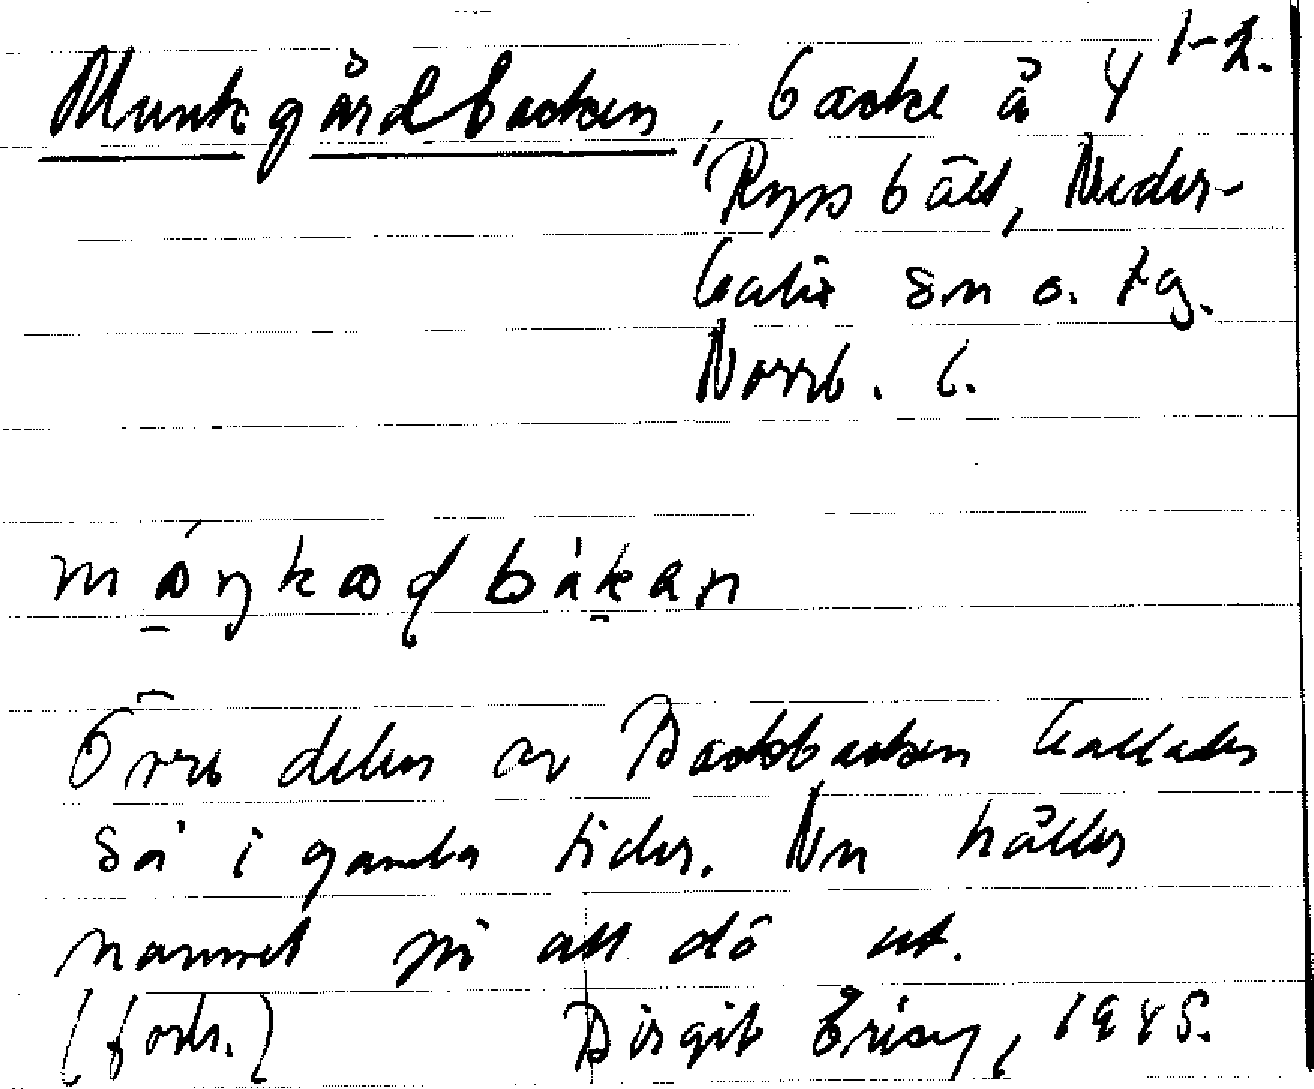 Munkgårdbacken, backe å 4 1-2.
Ryssbält, Neder-
kalix sn o. tg.
Norrb. l.
Övre delen av Backbacken kallades
så i gamla tider. Nu håller
namnet på att dö ut.
(forts.) Birgit 1945.